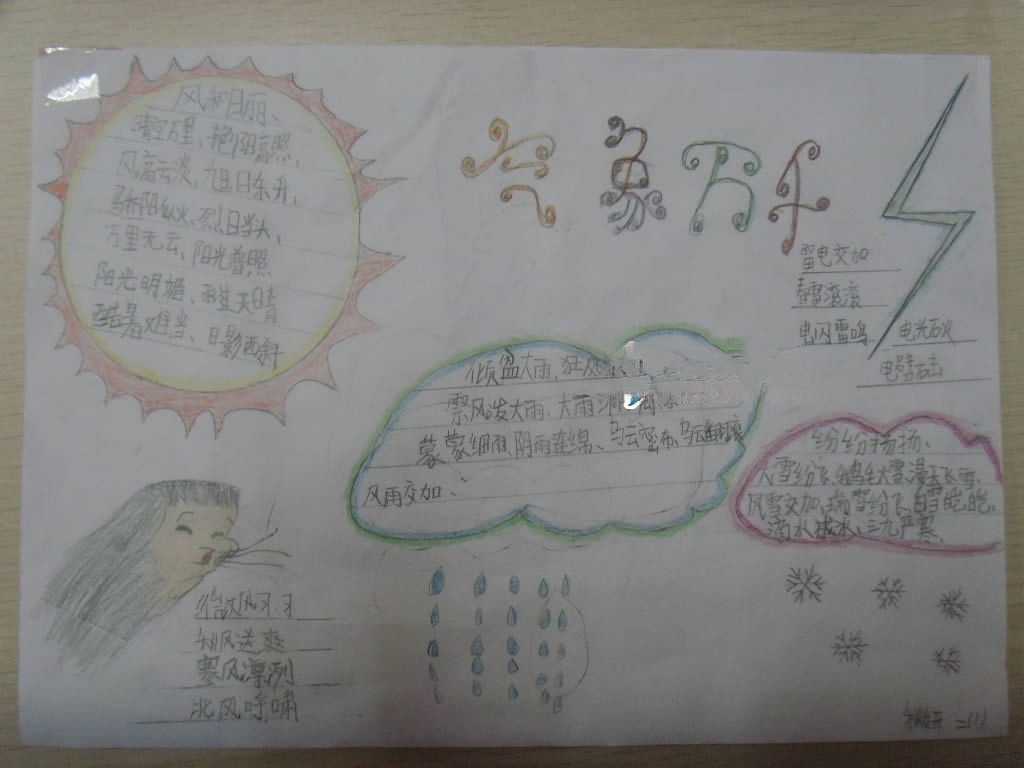 气象万千
风和日丽、
晴空万里、艳阳高照、
风高云淡、旭日东升、
骄阳似火、烈日当头、
万里无云、阳光普照
阳光明媚、雨过天晴
酷暑难当、日影西斜
雷电交加
春雷滚滚
电闪雷鸣
电光石火
电
倾盆大雨、狂风
暴风泼大雨、大雨
蒙蒙细雨、阴雨连绵、乌云密布、乌云
风雨交加、
纷纷扬扬、
大雪纷飞、鹅毛大雪、漫天飞雪、
风雪交加、瑞雪纷飞、白雪皑皑、
滴水成冰、三九严寒
微风习习
秋风送爽
寒风凛冽
北风呼啸